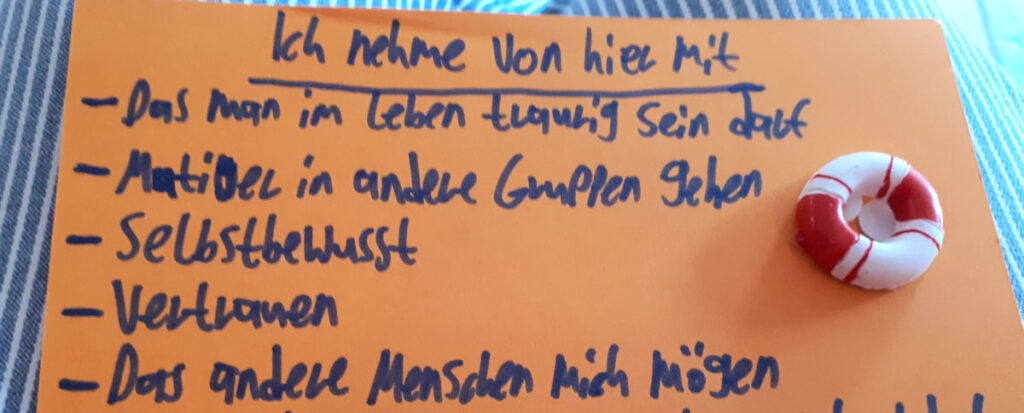 Ich nehme von hier mit
- Das man im Leben traurig sein darf
- Mutiger in andere Gruppen gehen
- Selbstbewusst
- Vertrauen
- Das andere Menschen mich mögen